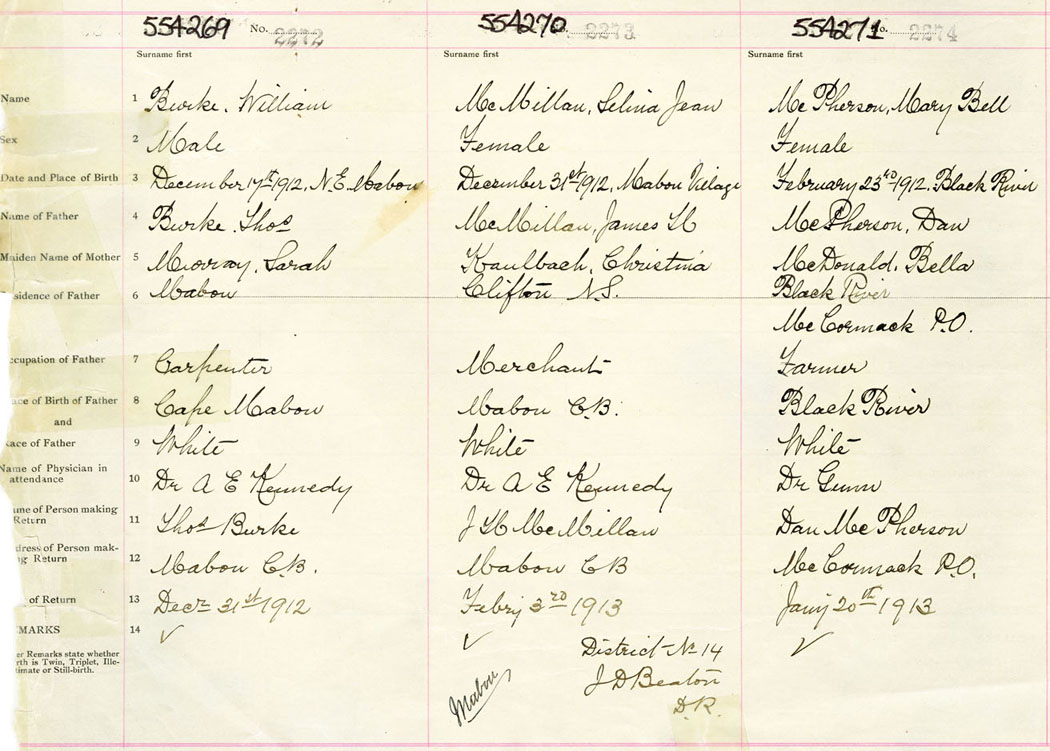 55A269 No. 2272 55A270 No. 2273 55A271 No. 2274
Surname first Surname first Surname first
Name 1 Burke, William McMillan, Selina Jean McPherson, Mary Bell
Sex 2 Male Female Female
Date and Place of Birth 3 December 17th 1912, N.E. Mabou December 31st 1912, Mabou Village February 23rd 1912, Black River
Name of Father 4 Burke, Thos McMillan, James H McPherson, Dan
Maiden Name of Mother 5 Murray, Sarah Kaulbach, Christina McDonald, Bella
sidence of Father 6 Mabou Clifton N.S. Black River
McCormack P.O.
ccupation of Father 7 Carpenter Merchant Farmer
ace of Birth of Father 8 Cape Mabou Mabou C.B. Black River
and
Race of Father 9 White White White
Name of Physician in
attendance 10 Dr A E Kennedy Dr A E Kennedy Dr Gunn
ame of Person making
Return 11 Thos Burke J H McMillan Dan McPherson
dress of Person mak-
ng Return 12 Mabou C.B. Mabou C B McCormack P.O.
of Return 13 Decr 31st 1912 Febry 3rd 1913 Jany 20th 1913
EMARKS 14 ✓ ✓ ✓
er Remarks state whether
rth is Twin, Triplet, Ille-
timate or Still-birth.
District No 14
J D Beaton
D.R.
Mabou